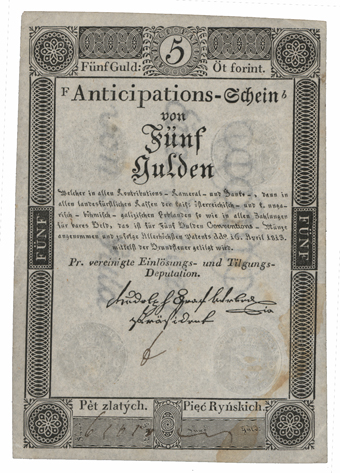 5
Fünf Guld: Öt forint.
F Anticipations-Schein b
von
Fünf
Gulden
Welcher in allen Kontributions- Kameral- und Banko-, dann in
allen landesfürstlichen Kassen der kais: österreichisch- und k. unga-
risch- böhmisch- galizischen Erblanden so wie in allen Zahlungen
für bares Geld, das ist für Fünf Gulden Conventions-Münze
angenommen und zufolge Allerhöchsten Patents ddo 16. April 1813.
mittelst der Grundsteuer getilgt wird.
Pr. vereinigte Einlösungs- und Tilgungs-
Deputation.
Präsident
FÜNF
FÜNF
Pĕt zlatých. Pięć Ryńskich.